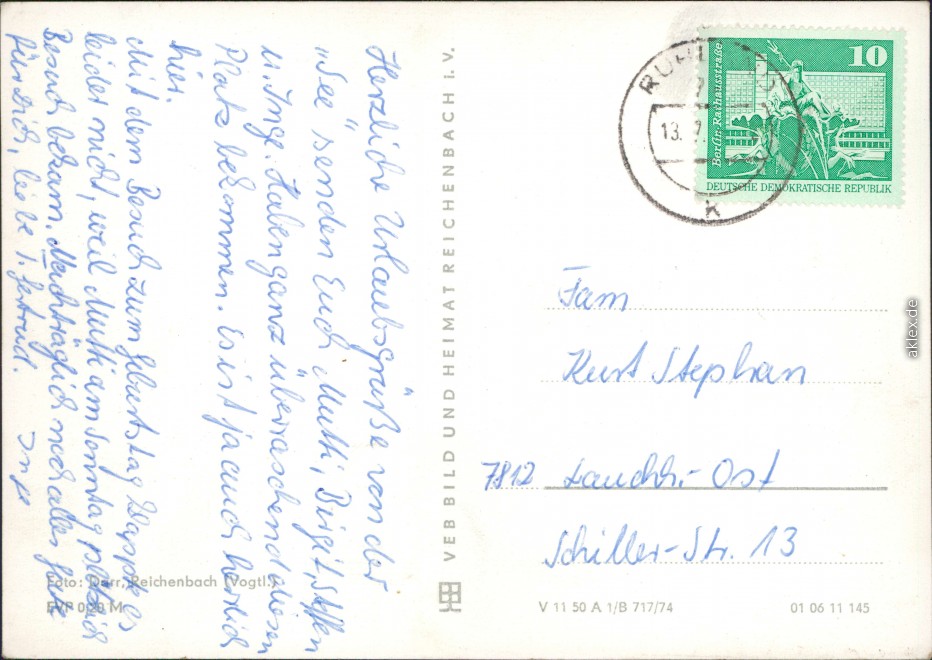 Herzliche Urlaubsgrüße von der
"See" senden Euch Mutti, Birgit, Steffen
u. Inge. Haben ganz überraschend diesen
Platz bekommen. Es ist ja auch herrlich
hier.
Mit dem Besuch zum Geburtstag klappte es
leider nicht, weil Mutti am Sonntag plötzlich
Besuch bekam. Nachträglich noch alles Gute
für Dich, liebe T. Gertrud.
Inge
Foto: Darr, Reichenbach (Vogtl.)
EVP 0,20 M
VEB BILD UND HEIMAT REICHENBACH I. V.
10
Berlin, Rathausstraße
DEUTSCHE DEMOKRATISCHE REPUBLIK
13.
k
Fam
Kurt Stephan
7812 Lauchh.-Ost
Schiller-Str. 13
V 11 50 A 1/B 717/74
01 06 11 145
aklex.de